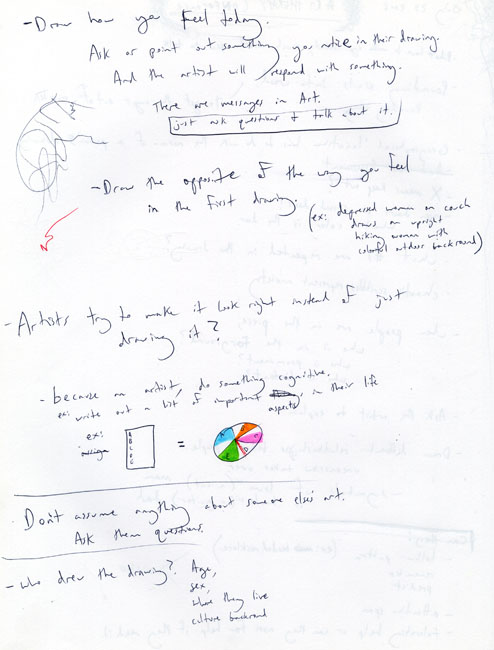 - Draw how you feel today.
Ask or point out something you notice in their drawing.
And the artist will respond with something.
There are messages in Art.
just ask questions & talk about it.
- Draw the opposite of the way you feel
in the first drawing
(ex: depressed woman on couch
draws an upright
hiking woman with
colorful outdoor backround)
- Artists try to make it look right instead of just
drawing it?
- because an artist, do something cognitive.
ex: write out a list of important
aspects in their life
ex:
assign
A
B
C
=
- Don't assume anything about someone else's art.
Ask them questions.
- who drew the drawing? Age,
sex,
where they live
culture backround